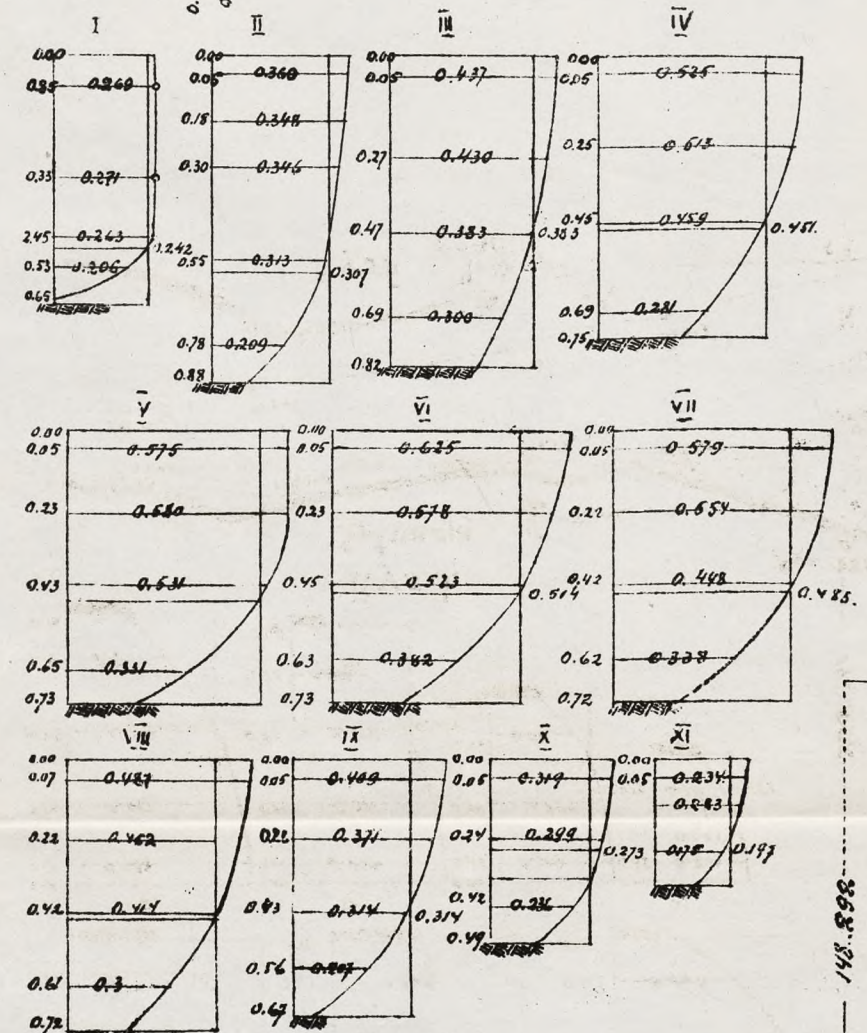 I
0.00
0.269
0.35 0.271
2.45 0.263
0.242
0.53 0.206
0.65
II
0.00
0.05 0.360
0.15 0.348
0.30 0.346
0.55 0.313
0.307
0.78 0.209
0.88
III
0.00
0.05 0.437
0.27 0.430
0.47 0.383 0.383
0.69 0.300
0.82
IV
0.00
0.05 0.525
0.25 0.513
0.45 0.459 0.451.
0.69 0.281
0.75
V
0.00
0.05 0.575
0.23 0.580
0.43 0.531
0.65 0.331
0.73
VI
0.00
0.05 0.625
0.23 0.578
0.45 0.523
0.514
0.63 0.382
0.73
VII
0.00
0.05 0.579
0.22 0.554
0.42 0.448
0.485.
0.62 0.338
0.72
VIII
0.00
0.07 0.487
0.22 0.462
0.42 0.414
0.61 0.3
0.72
IX
0.00
0.05 0.409
0.22 0.371
0.43 0.314 0.314
0.56 0.207
0.67
X
0.00
0.05 0.319
0.24 0.299
0.273
0.42 0.236
0.49
XI
0.00
0.05 0.234
0.223
0.175 0.197
148.898